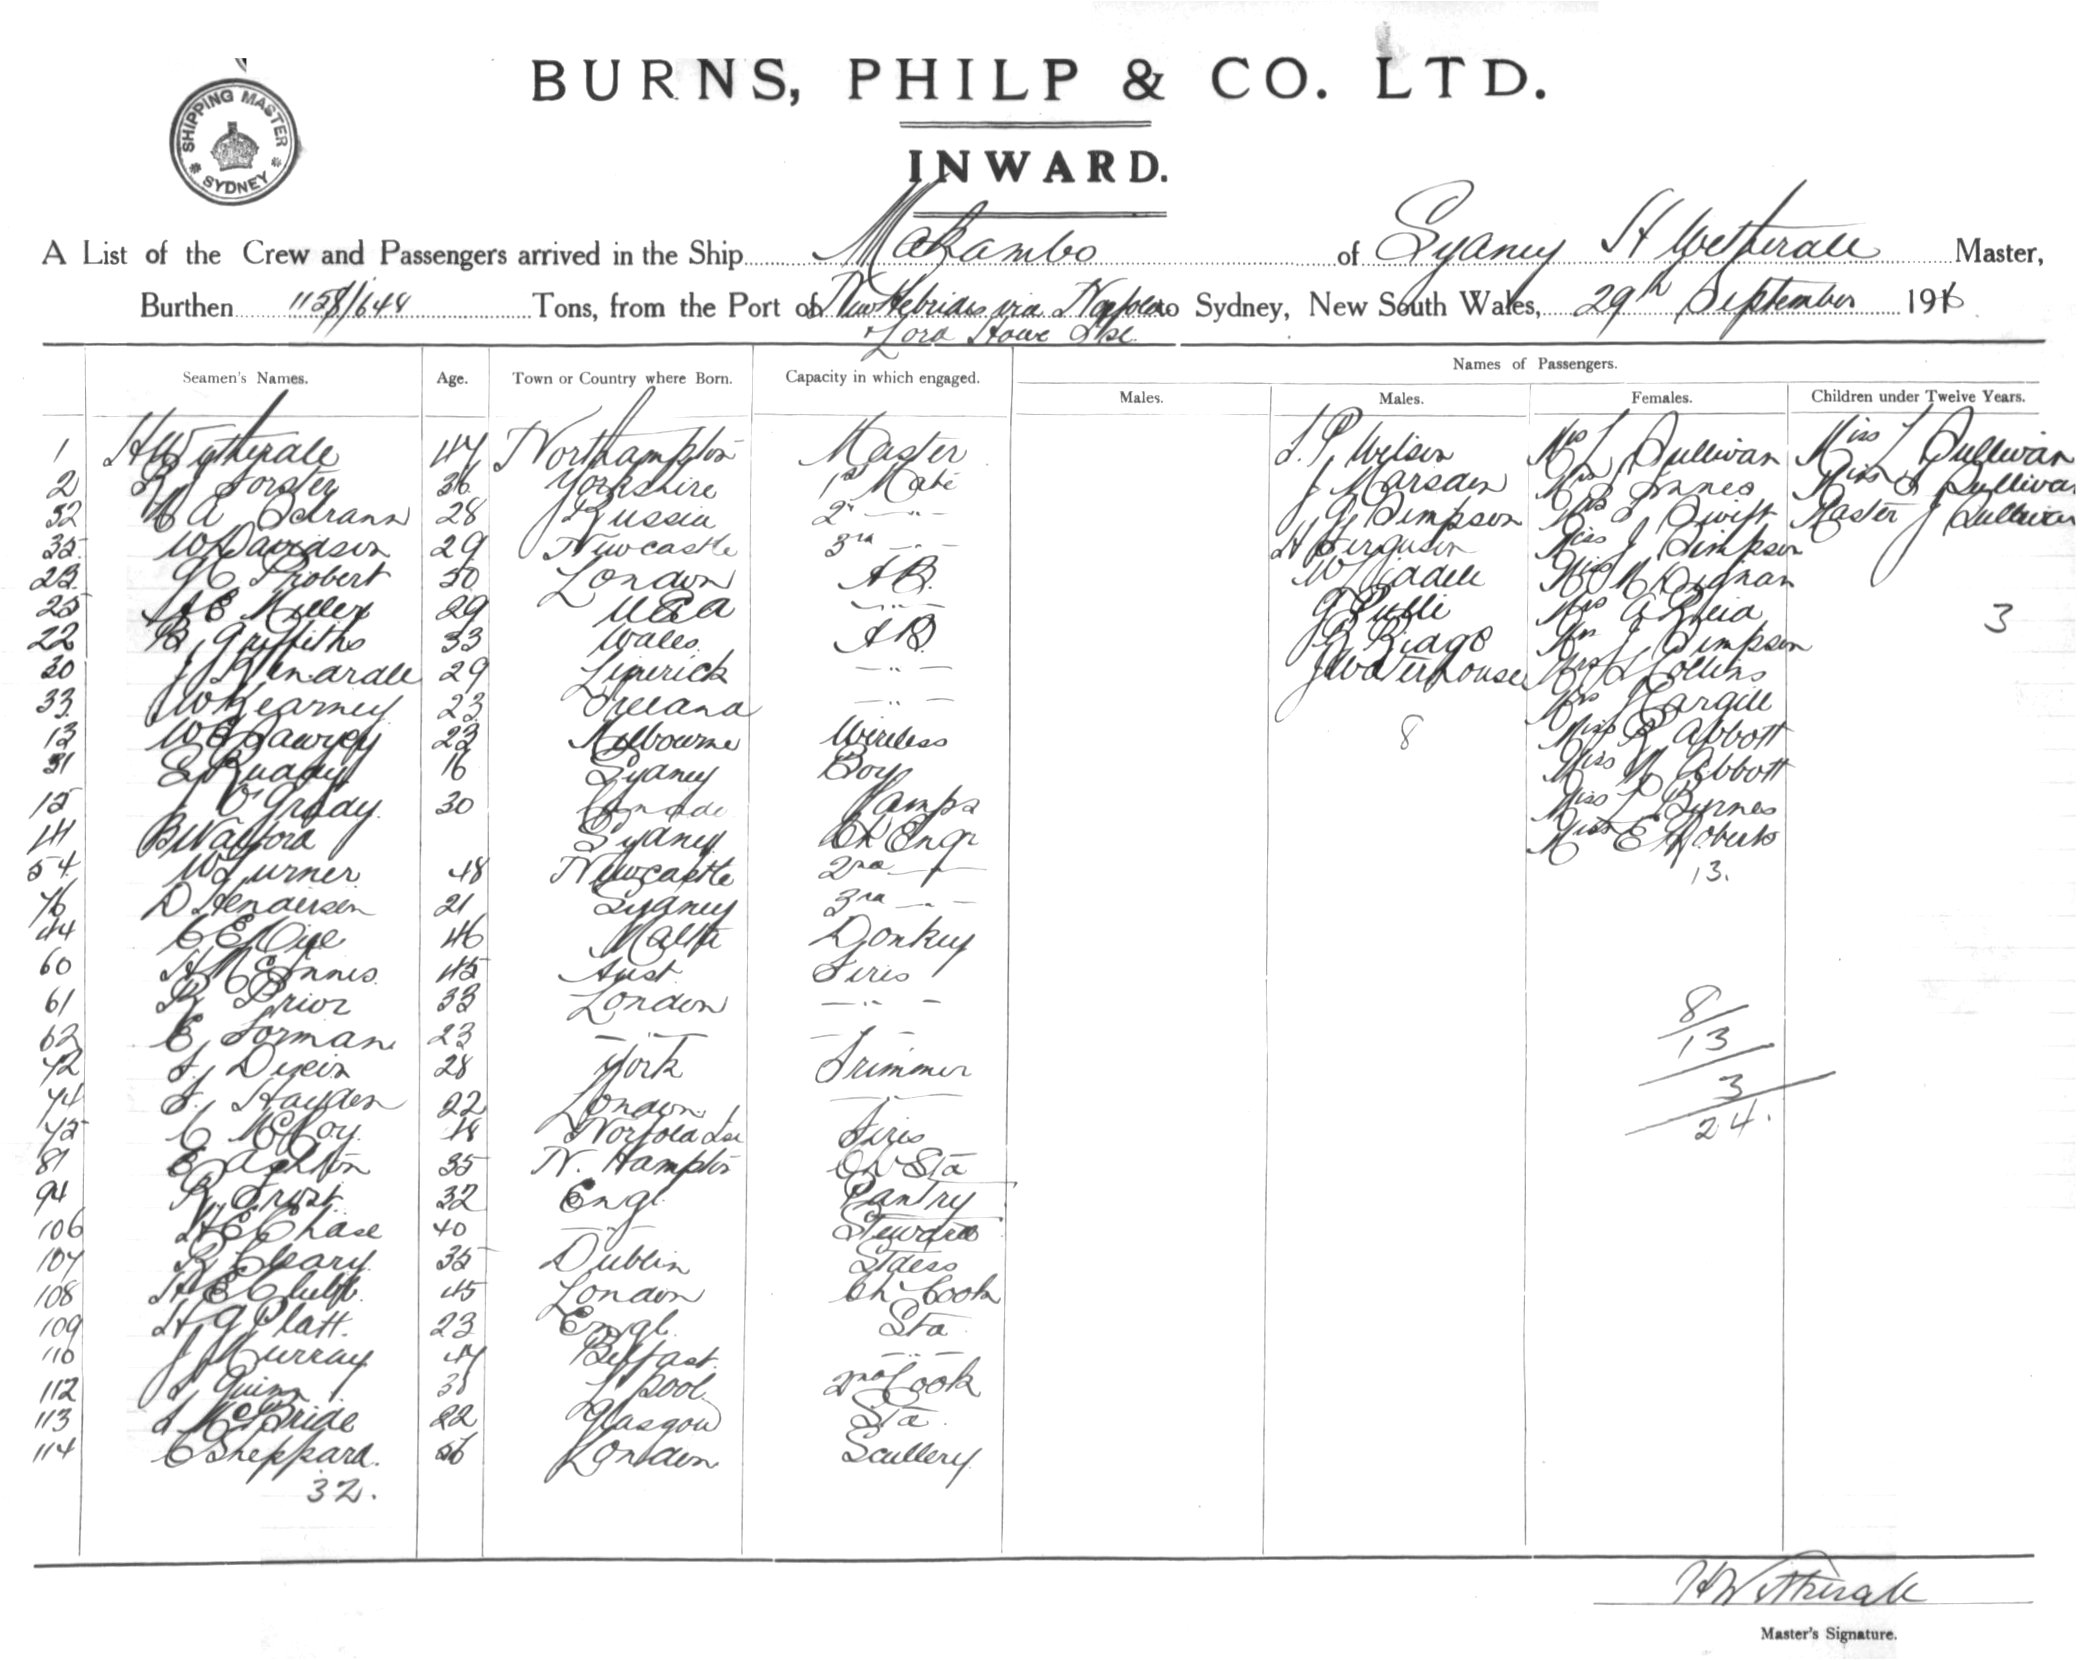 BURNS, PHILP & CO. LTD.
SHIPPING MASTER
SYDNEY
INWARD.
A List of the Crew and Passengers arrived in the Ship Makambo of Sydney H Wetherall Master,
Burthen 1158/648 Tons, from the Port of New Hebrides via Norfolk to Sydney, New South Wales, 29th September 1916
& Lord Howe Isl.
Names of Passengers.
Seamen's Names. Age. Town or Country where Born. Capacity in which engaged. Males. Males. Females. Children under Twelve Years.
1 H Wetherall 47 Northampton Master L. P. Wilson Mrs L Sullivan Miss L Sullivan
2 R J Forster 36 Yorkshire 1st Mate J Marsden Mrs Innes Miss J Sullivan
32 28 Russia 2nd -"- J G Simpson Mrs L Swift Master J Sullivan
35 W Davidson 29 Newcastle 3rd -"- H Ferguson Miss J Simpson
23 Probert 30 London AB. W Liddell Miss M Dignan
25 A E Miller 29 USA -"- J Publi Mrs A Reid
22 B Griffiths 33 Wales AB. R Ridge Mrs J Simpson 3
30 J Kenardle 29 Limerick -"- J Waterhouse Mrs L Collins
33 W Kearney 23 Ireland -"- Mrs J Cargill
13 W E Sawyer 23 Melbourne Wireless 8 Miss R Abbott
31 E Ruddy 16 Sydney Boy Miss N Abbott
15 J O'Grady. 30 Canada Lamps Miss L Byrnes
41 B Walford Sydney Ch Engr Miss E Roberts
54 W Turner 48 Newcastle 2nd -"- 13.
76 D Henderson 21 Sydney 3rd -"-
44 C E 46 Malta Donkey
60 H McInnes 45 Aust Fires
61 R Prior 33 London -"-
62 E Forman 23 -"- -"-
72 F. Dixon 28 York Trimmer
74 F. Hayden 22 London -"-
75 C McCoy 18 Norfold Isl Fires
81 E Ashton 35 N. Hampton Ch Std
94 R Frost 32 Engl. Pantry
106 H E Chase 40 -"- Steward
107 R Cleary 35 Dublin Stdess
108 H E 45 London Ch Cook
109 H G Platt. 23 Engl. Std
110 J Murray 47 Belfast. -"-
112 J Quinn L'pool 2nd Cook
113 J McBride 22 Glasgow Std.
114 C Sheppard. 56 London Scullery
32.
8
13
3
24.
H Wetherall
Master's Signature.